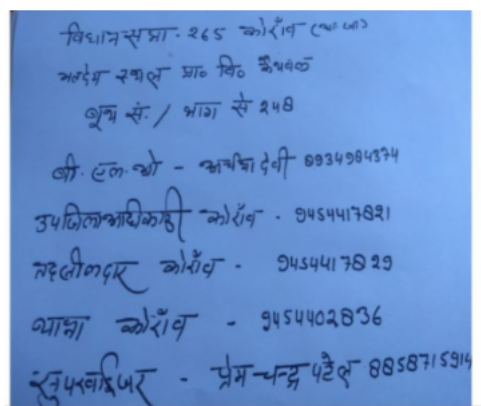 विधानसभा - 265 कोराँव (अ०जा०)
मतदेय स्थल प्रा० वि०
बूथ सं. / भाग सं 248
बी. एल. ओ - अर्चना देवी 8934984374
उपजिलाअधिकारी कोराँव - 9454417821
तहसीलदार कोराँव - 9454417829
थाना कोराँव - 9454402836
सुपरवाईजर - प्रेमचन्द्र पटेल 8858715914